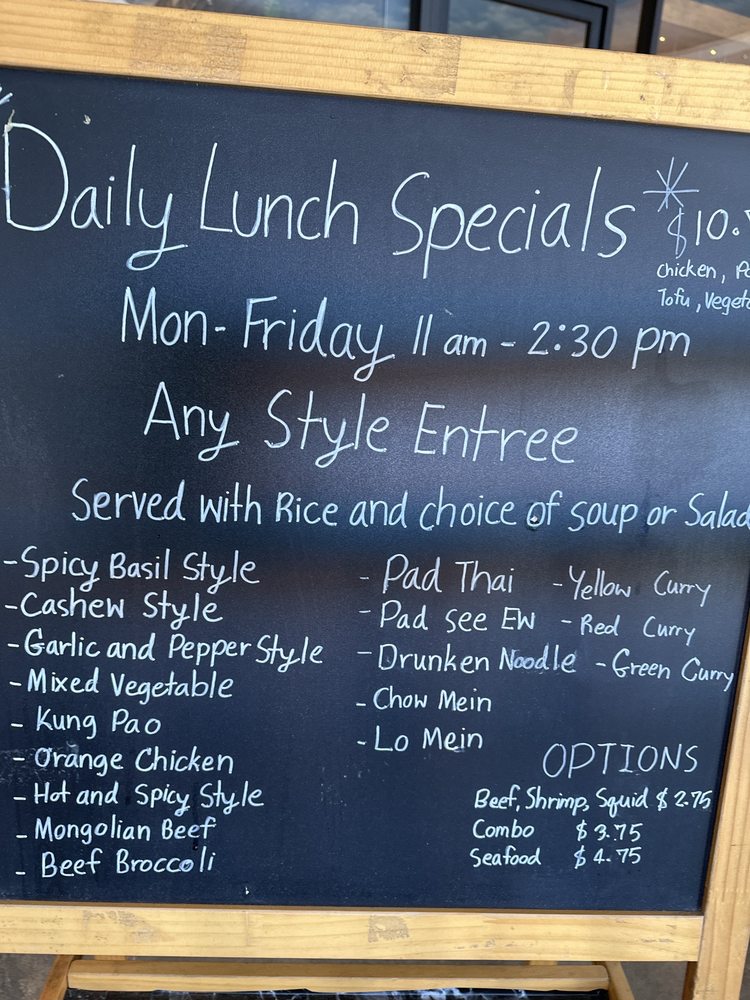 Daily Lunch Specials
$10.
Chicken,
Tofu,
Mon-Friday 11 am - 2:30 pm
Any Style Entree
Served with Rice and choice of soup or Salad
- Spicy Basil Style
- Cashew Style
- Garlic and Pepper Style
- Mixed Vegetable
- Kung Pao
- Orange Chicken
- Hot and Spicy Style
- Mongolian Beef
- Beef Broccoli
- Pad Thai
- Pad See Ew
- Drunken Noodle
- Chow Mein
- Lo Mein
- Yellow Curry
- Red Curry
- Green Curry
OPTIONS
Beef, Shrimp, Squid $2.75
Combo $3.75
Seafood $4.75